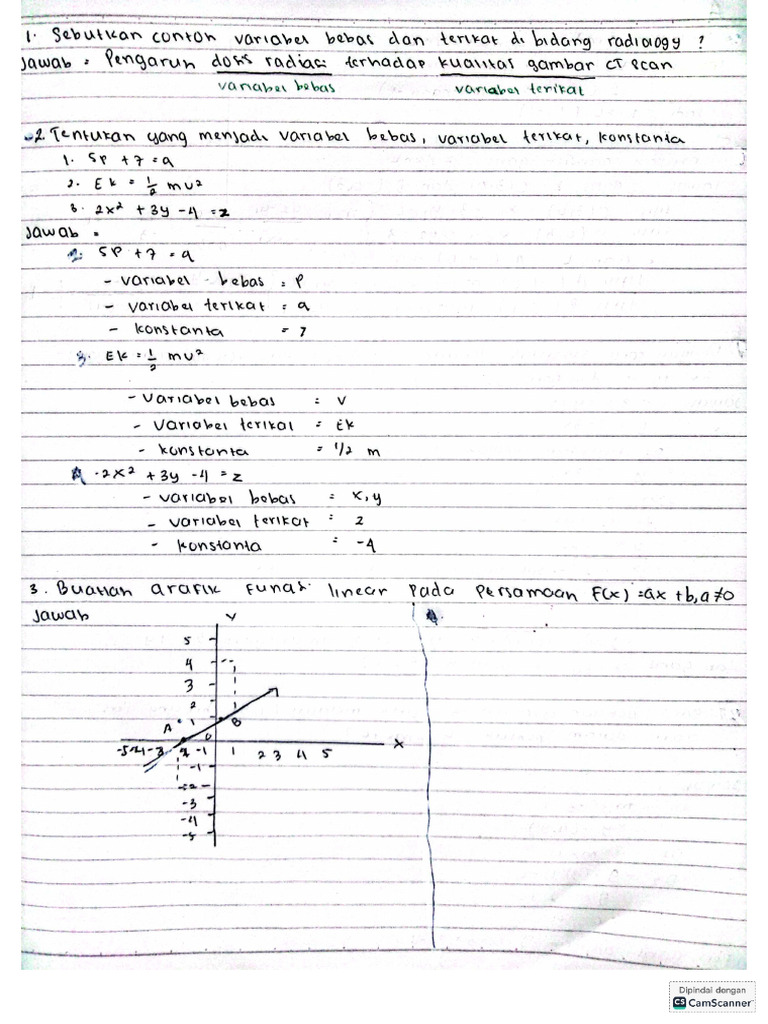 1. Sebutkan contoh variabel bebas dan terikat di bidang radiology ?
Jawab = Pengaruh dosis radiasi terhadap kualitas gambar CT Scan
variabel bebas variabel terikat
2. Tentukan yang menjadi variabel bebas, variabel terikat, konstanta
1. 5p + 7 = q
2. Ek = 1/2 mv²
3. 2x² + 3y - 4 = z
Jawab =
5p + 7 = q
- variabel bebas = p
- variabel terikat = q
- konstanta = 7
3. Ek = 1/2 mv²
- variabel bebas = v
- variabel terikat = Ek
- konstanta = 1/2 m
2x² + 3y - 4 = z
- variabel bebas = x, y
- variabel terikat = z
- konstanta = -4
3. Buatlah grafik Fungsi linear pada persamaan F(x) = ax + b, a ≠ 0
Jawab
Y
5
4
3
2
A 1 B
0
-5 -4 -3 -2 -1 1 2 3 4 5 X
-1
-2
-3
-4
-5
Dipindai dengan
CS CamScanner